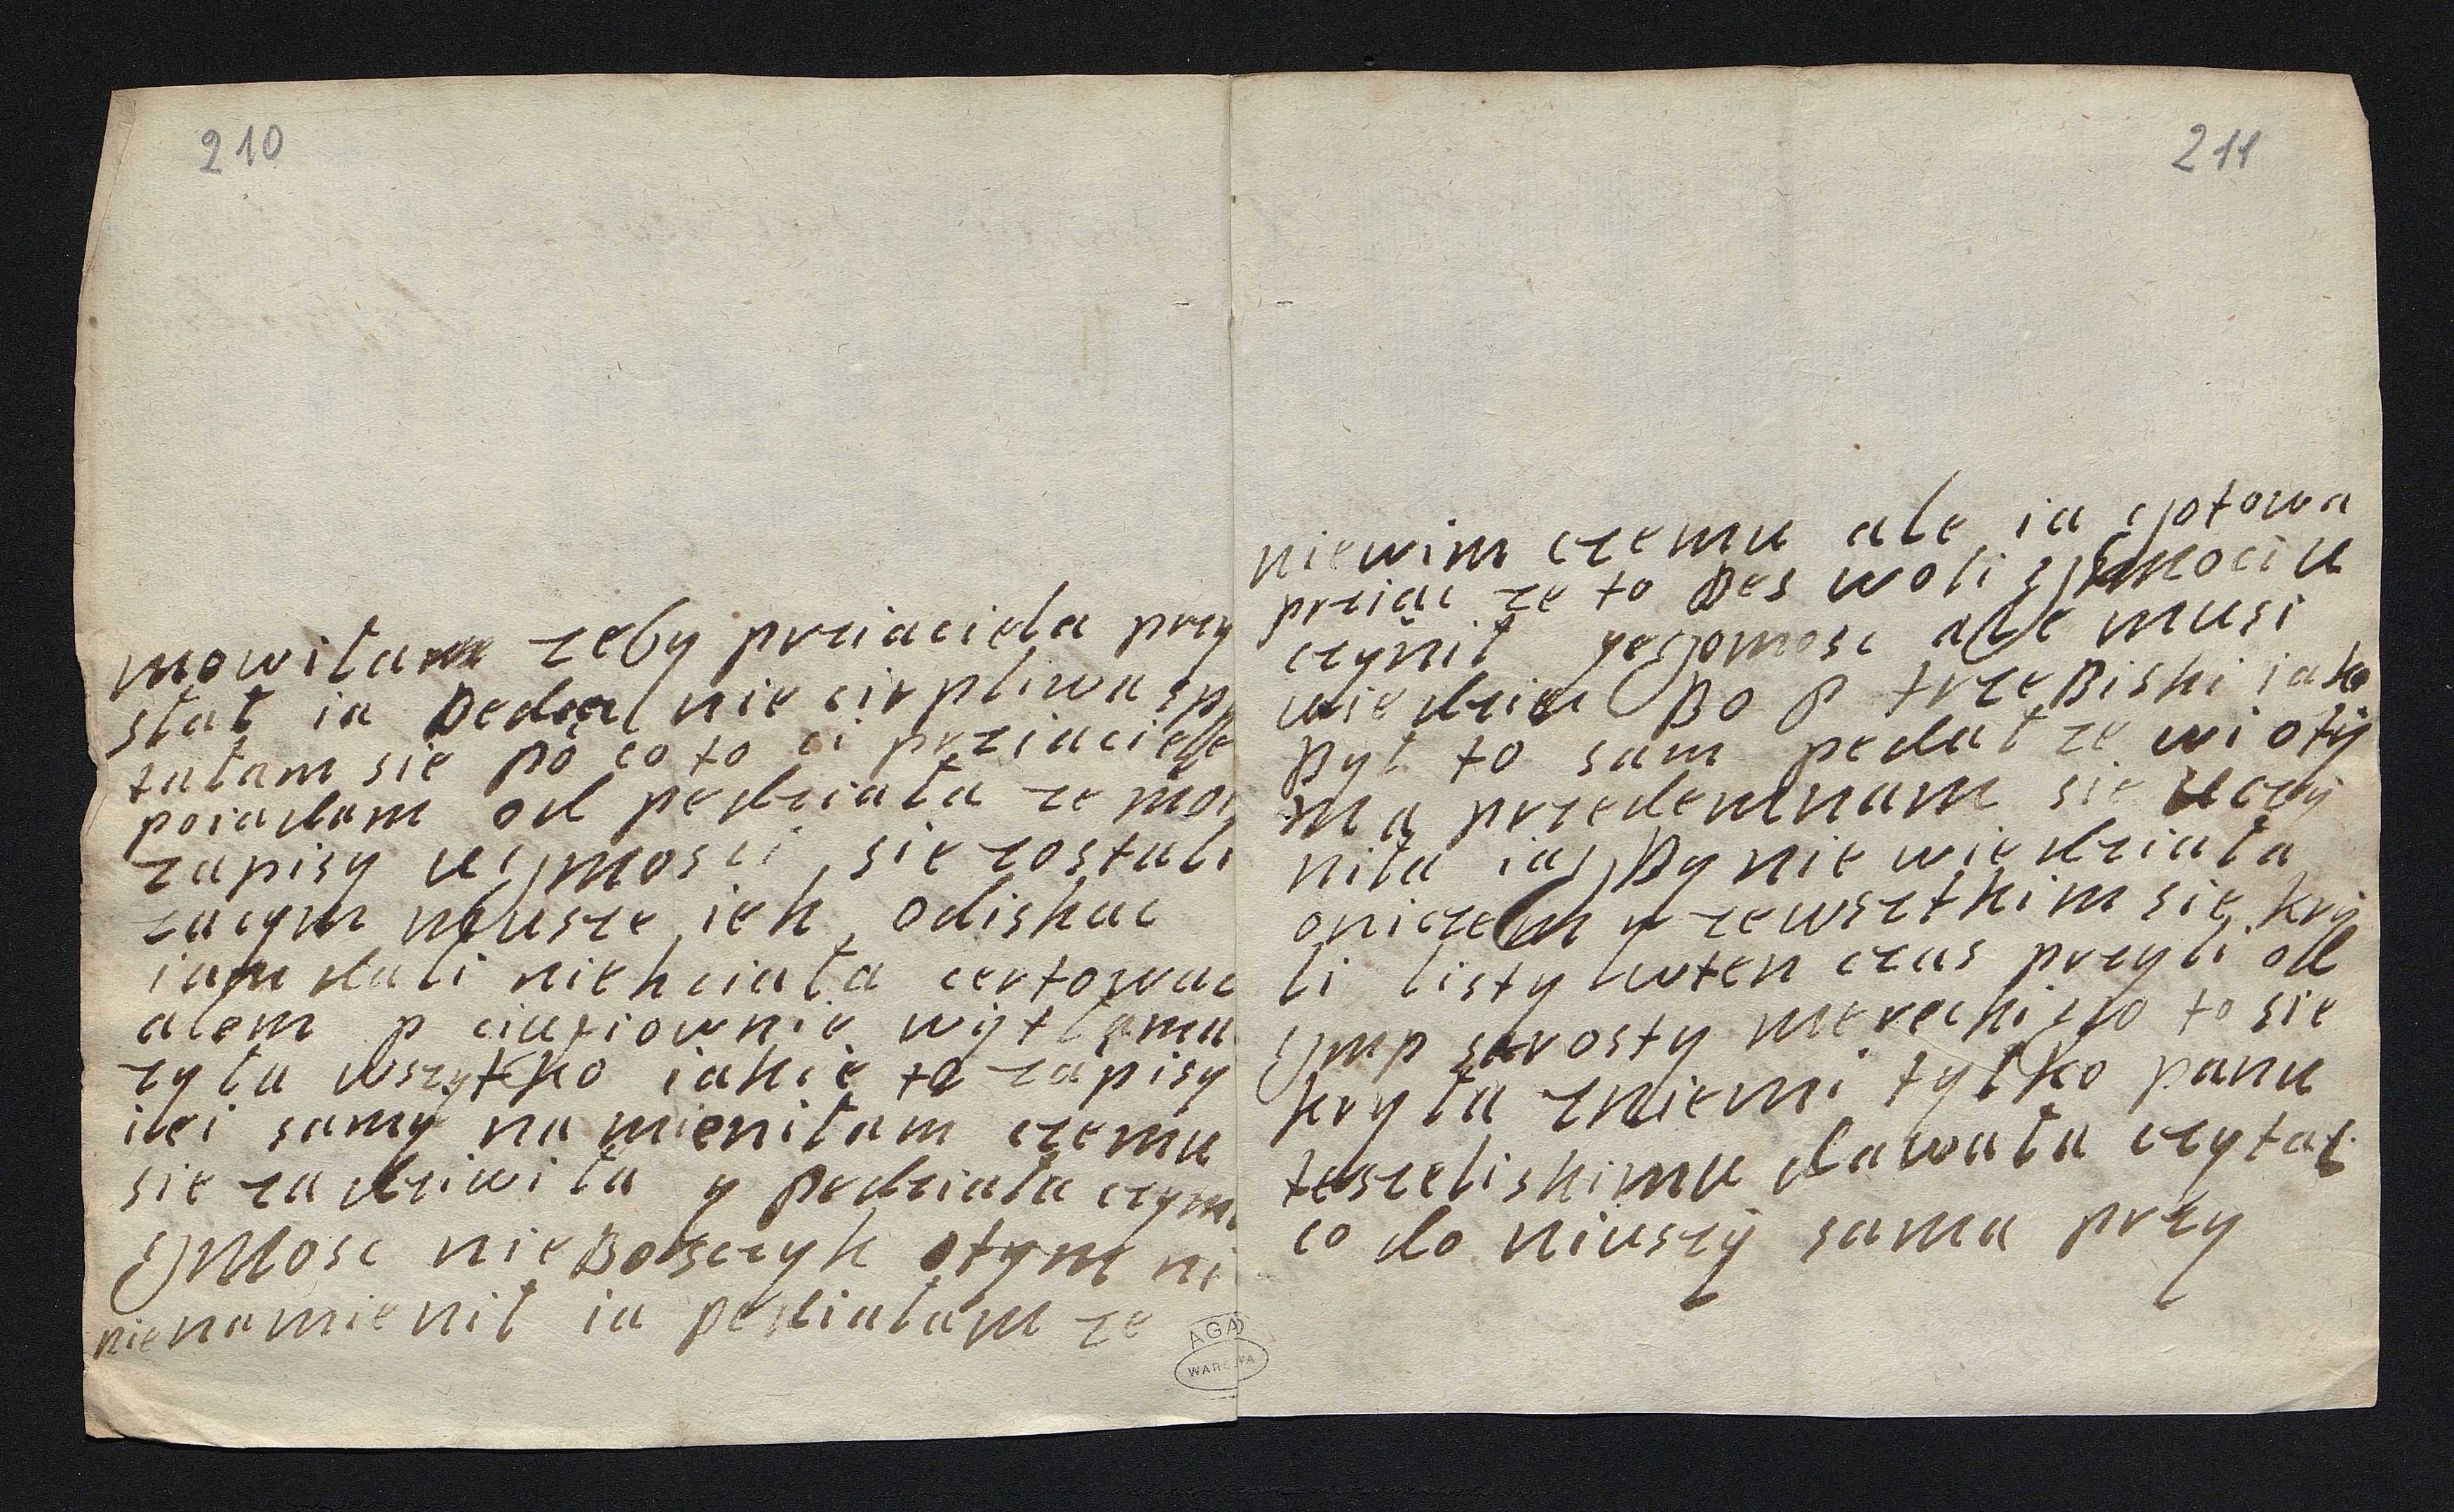 210
mowiłam zeby prziaciela przy
stał ia Bedac nie cirpliwa sp
tałam sie po co to ci prziaciele
poiadam od pedziała ze moi
zapisy u ijmosci sie zostali
zacym musze ich odiskac
iam dali niehciała certowac
alem p ciuriownie wyttamu
zyła wszytko iakie to zapisy
iei samy na mieniłam czemu
sie za dziwiła y pedziała czym
ijmosc nieBosczyk otym ni
nienamienił ia pedziałam ze
211
niewim czemu ale ia gotowa
prziac ze to Bes woli ijmoci u
czynił yegomosc ale musi
wiedziec Bo P trzeBiski iako
Był to sam pedał ze wi otÿ
ma przedemnam sie uczÿ
niła iaj By nie wiedziała
oniczem y zewsztkim się krÿ
li listy wten czas przyli od
ijmp sarosty merechi go to sie
kryła zniemi tylko panu
teszeliskimu dawała czytac
co do niuszÿ sama przy
AGAD
WARSZAWA